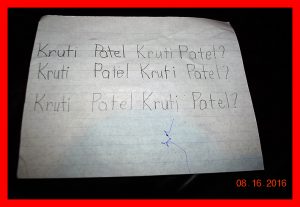 Kruti Patel Kruti Patel?
Kruti Patel Kruti Patel?
Kruti Patel Kruti Patel?
08 16 2016